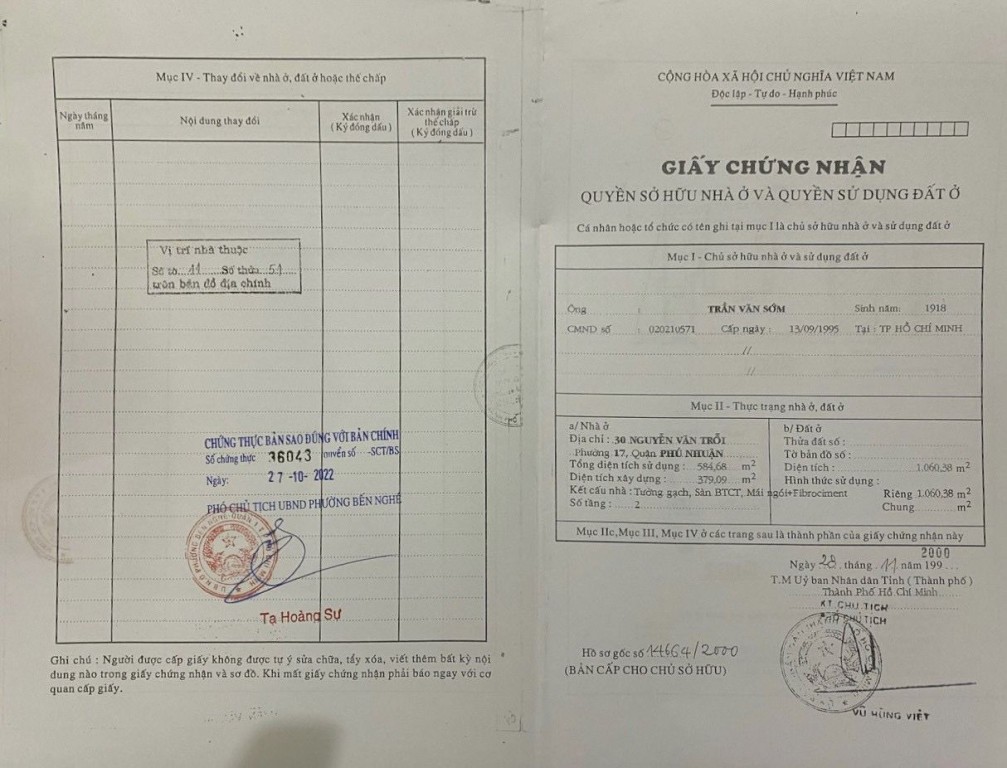 Mục IV - Thay đổi về nhà ở, đất ở hoặc thế chấp
Ngày tháng năm
Nội dung thay đổi
Xác nhận
(Ký đóng dấu)
Xác nhận giải trừ
thế chấp
(Ký đóng dấu)
Vị trí nhà thuộc
Số tờ...11.....Số thửa...51....
trên bản đồ địa chính
CHỨNG THỰC BẢN SAO ĐÚNG VỚI BẢN CHÍNH
Số chứng thực 36043 quyển số -SCT/BS
Ngày: 27-10-2022
PHÓ CHỦ TỊCH UBND PHƯỜNG BẾN NGHÉ
Tạ Hoàng Sự
Ghi chú : Người được cấp giấy không được tự ý sửa chữa, tẩy xóa, viết thêm bất kỳ nội
dung nào trong giấy chứng nhận và sơ đồ. Khi mất giấy chứng nhận phải báo ngay với cơ
quan cấp giấy.
CỘNG HÒA XÃ HỘI CHỦ NGHĨA VIỆT NAM
Độc lập - Tự do - Hạnh phúc
GIẤY CHỨNG NHẬN
QUYỀN SỞ HỮU NHÀ Ở VÀ QUYỀN SỬ DỤNG ĐẤT Ở
Cá nhân hoặc tổ chức có tên ghi tại mục I là chủ sở hữu nhà ở và sử dụng đất ở
Mục I - Chủ sở hữu nhà ở và sử dụng đất ở
Ông : TRẦN VĂN SỚM Sinh năm: 1918
CMND số : 020210571 Cấp ngày : 13/09/1995 Tại : TP HỒ CHÍ MINH
//
//
Mục II - Thực trạng nhà ở, đất ở
a/ Nhà ở
Địa chỉ : 30 NGUYỄN VĂN TRỖI
Phường 17, Quận PHÚ NHUẬN
Tổng diện tích sử dụng : 584,68 m2
Diện tích xây dựng : 379,09 m2
Kết cấu nhà : Tường gạch, Sàn BTCT, Mái ngói+Fibrociment
Số tầng : 2
b/ Đất ở
Thửa đất số :
Tờ bản đồ số :
Diện tích : 1.060,38 m2
Hình thức sử dụng :
Riêng 1.060,38 m2
Chung m2
Mục IIc,Mục III, Mục IV ở các trang sau là thành phần của giấy chứng nhận này
2000
Ngày 28. tháng . 11. năm 199...
T.M Uỷ ban Nhân dân Tỉnh ( Thành phố )
Thành Phố Hồ Chí Minh
KT CHỦ TỊCH
CHỦ TỊCH
Hồ sơ gốc số 14664/2000
(BẢN CẤP CHO CHỦ SỞ HỮU)
VŨ HÙNG VIỆT